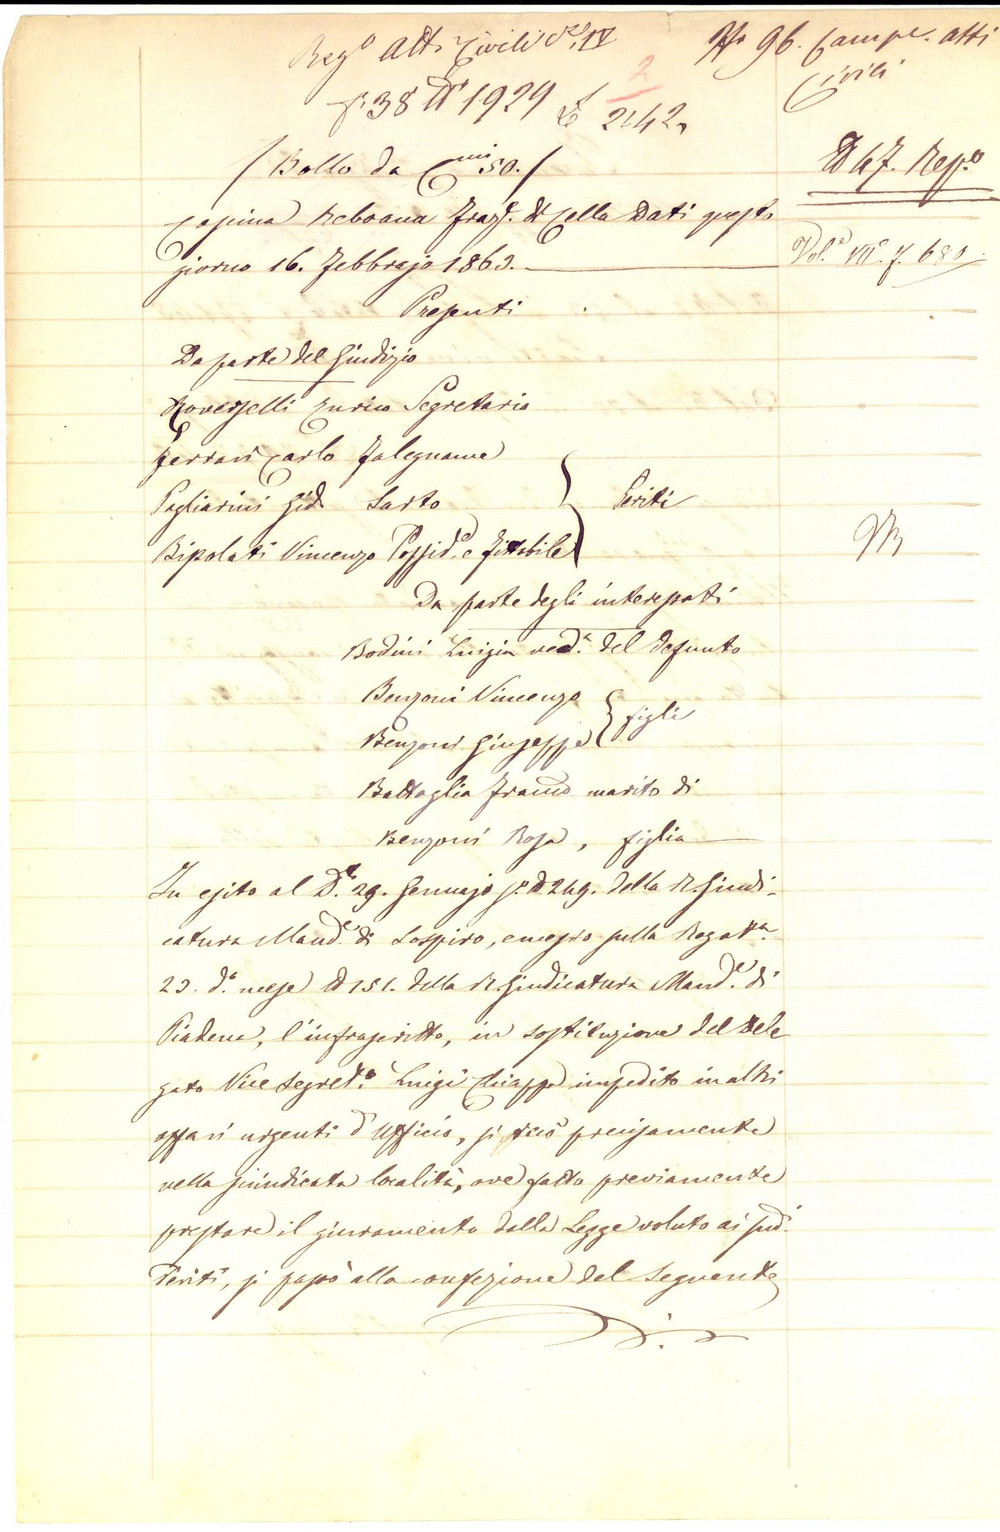 Reg.o Atti Civili Vol. IV
No 96. Campe. atti
Civili
f. 38 No 1929 £ 2:42
2
No 47. Rep.o
Vol.e VII.o f. 680
( Bollo da Cmi 50. )
Cascina Reboana Fraz.e di Cella Dati questo
giorno 16. Febbrajo 1863.
Presenti
Da parte del Giudizio
Roverselli Enrico Segretario
Ferrari Carlo Falegname
Pagliarini Gid. Sarto } Periti
Bipolati Vincenzo Possid.e e Fittabile
Da parte degli interessati
Bodini Luigia ved.a del defunto
Benzoni Vincenzo
Benzoni Giuseppe } figli
Battaglia Franco marito di
Benzoni Rosa, figlia
In esito al D.to 29. Gennajo p.o No 249. della R. Giudi-
catura Mand.e di Sospiro, emesso sulla Rogat.a
23. d.o mese No 151. della R. Giudicatura Mand.e di
Piadena, l'infrascritto, in sostituzione del Dele
gato Vice Segret.o Luigi Chiappe impedito in altri
affari urgenti d'Ufficio, si recò precisamente
nella giudicata località, ove fatto previamente
prestare il giuramento dalla Legge voluto ai sud.i
Periti, si passò alla confezione del seguente